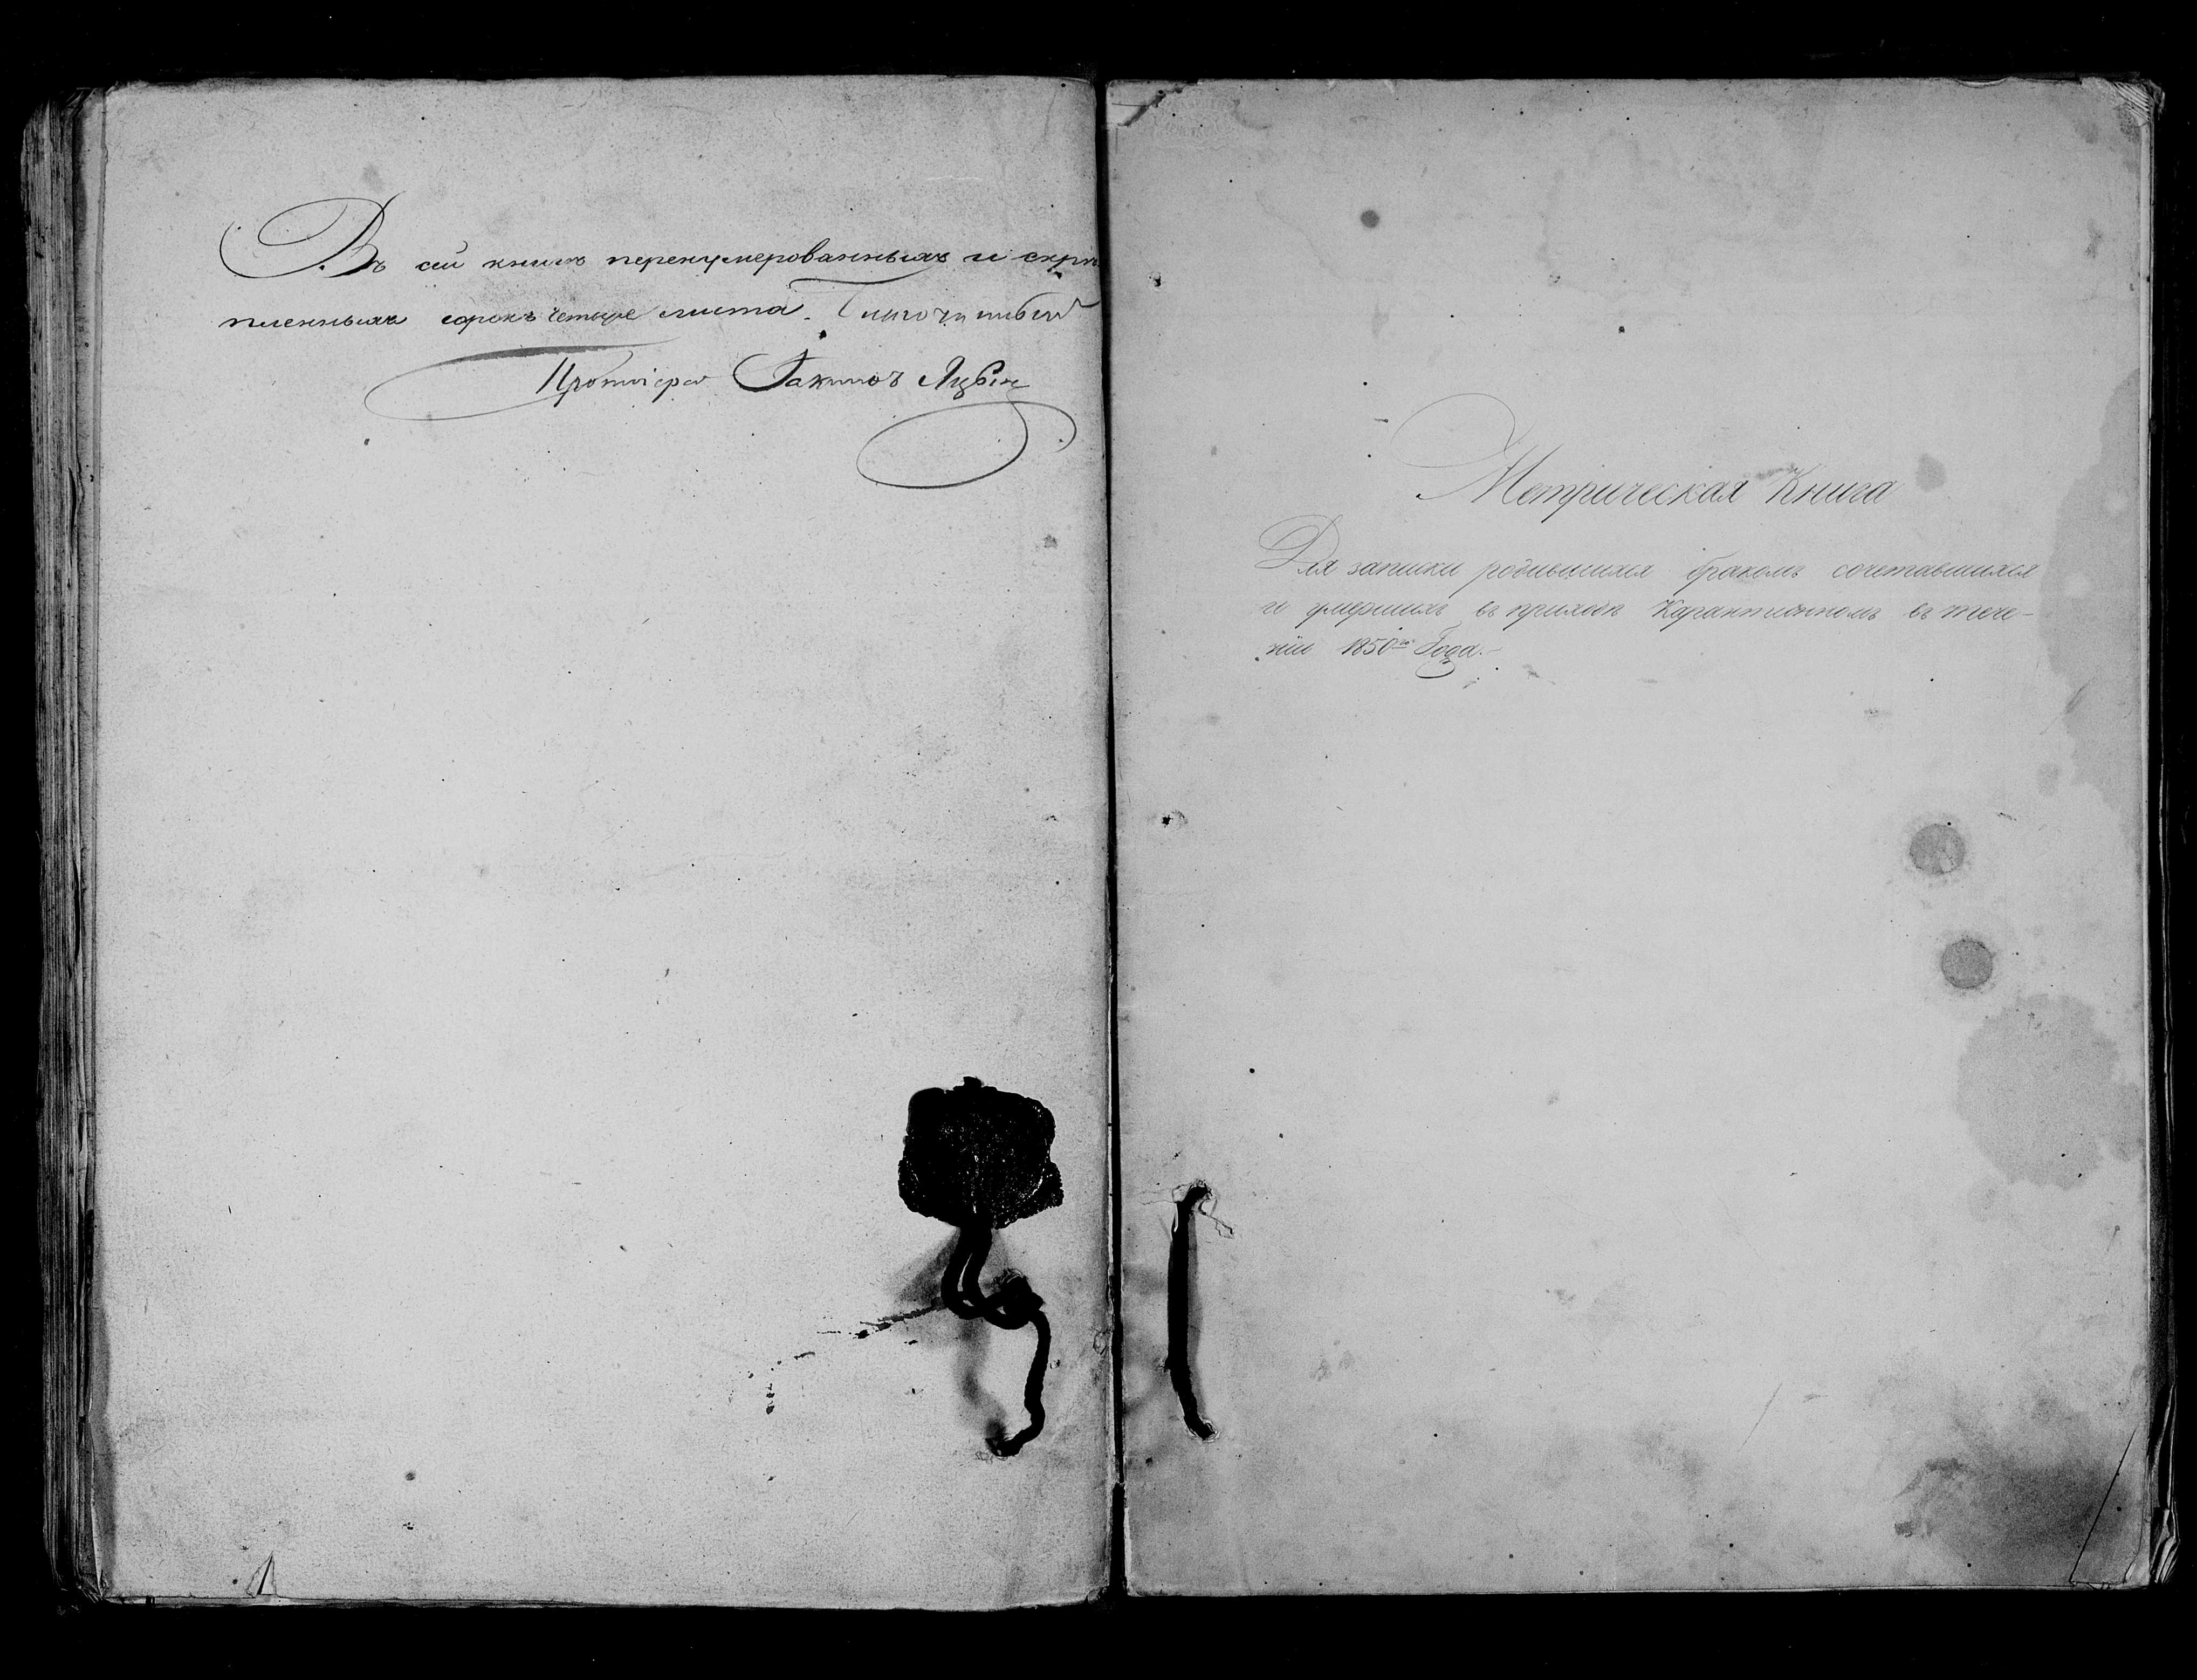 Въ сей книгѣ перенумерованныхъ и скрѣ
пленныхъ сорокъ четыре листа. Благочинный
Протоіерей
Метрическая Книга
Для записки родившихся бракомъ сочетавшихся
и умершихъ въ приходѣ Карантинномъ въ тече-
ніи 1850го Года.-